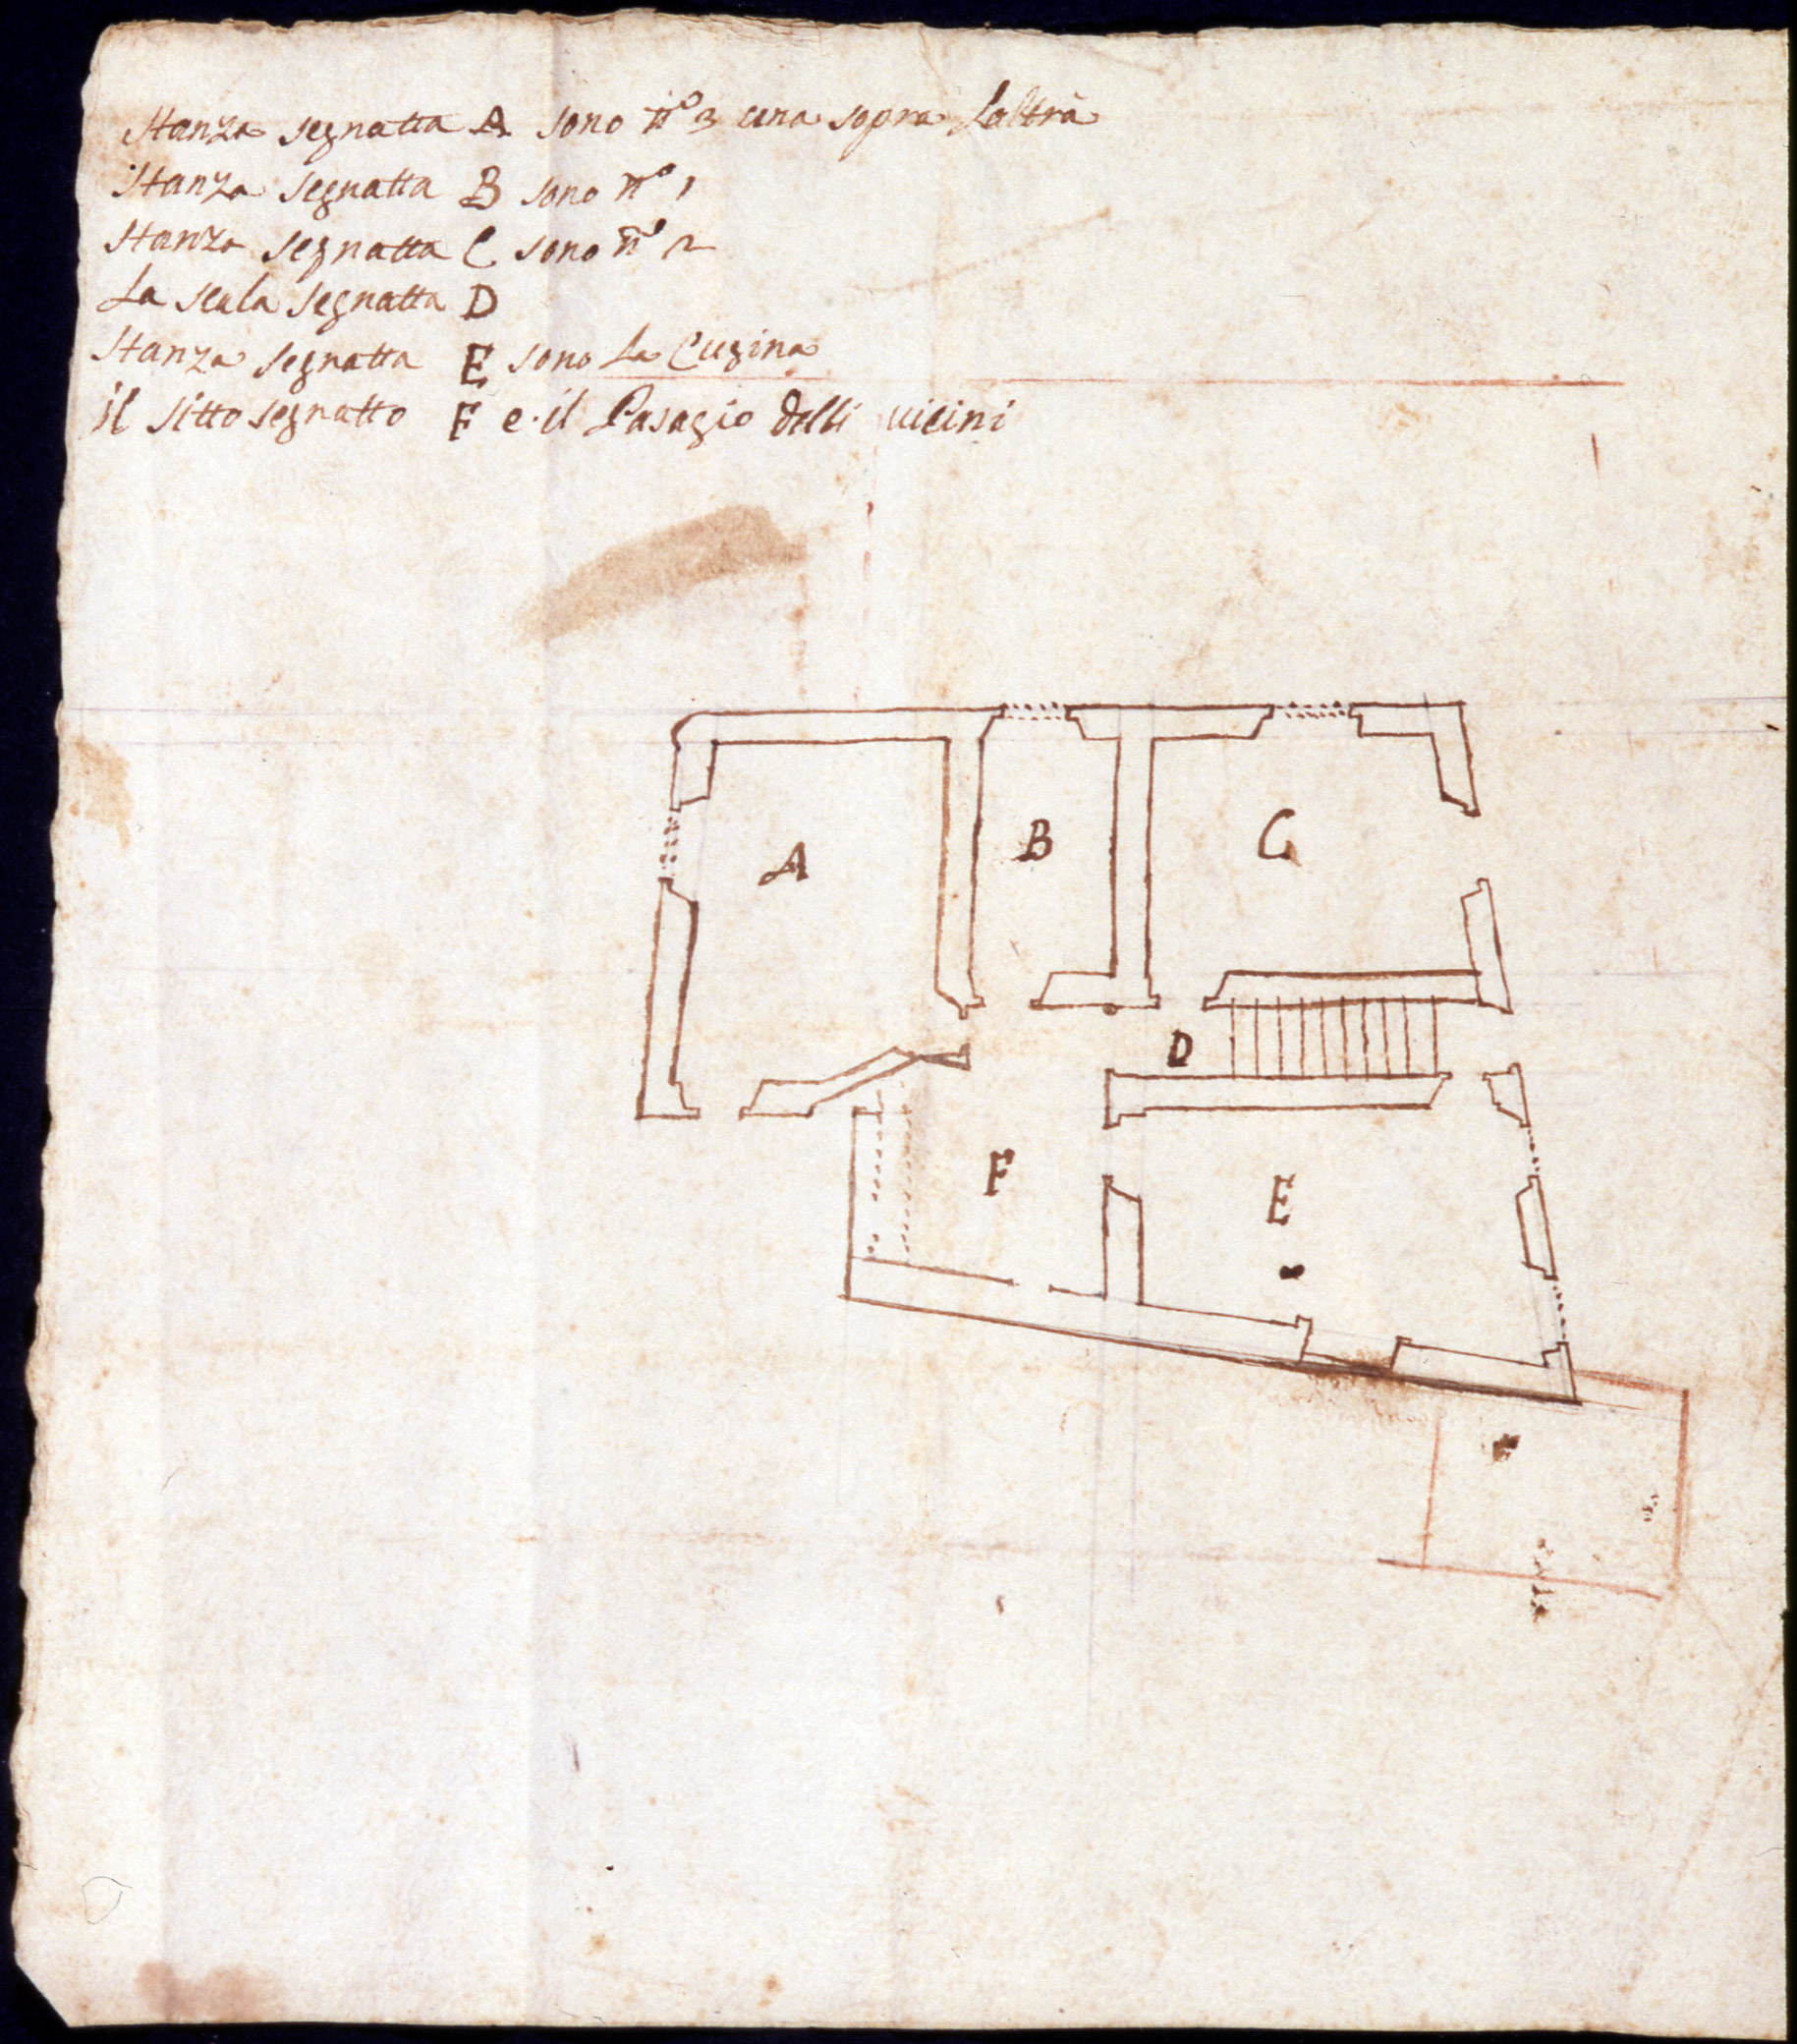 Stanza segnatta A sono n.º 3 una sopra Laltra
Stanza segnatta B sono n.º 1
Stanza segnatta C sono n.º 2
La scala segnatta D
Stanza segnatta E sono La Cuzina
il sitto segnatto F e il Pasagio delli vicini
A
B
C
D
F
E